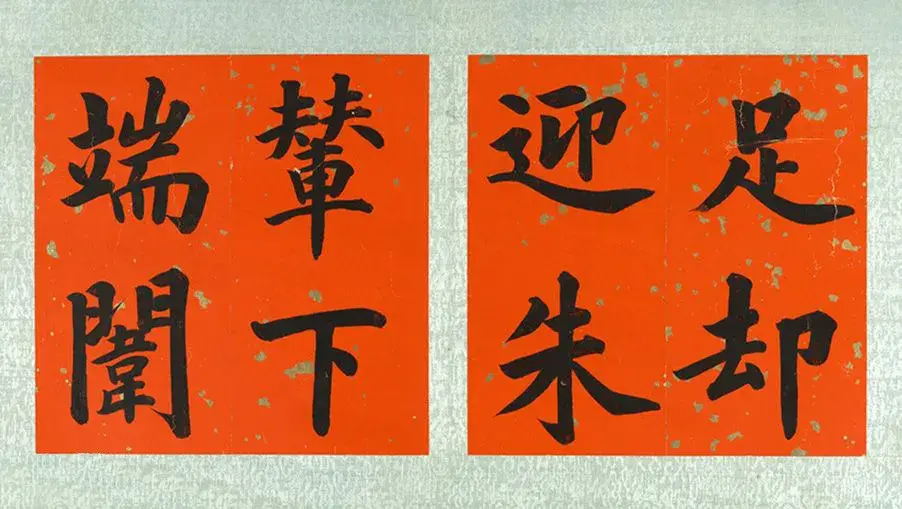 足却
迎朱
輦下
端闈